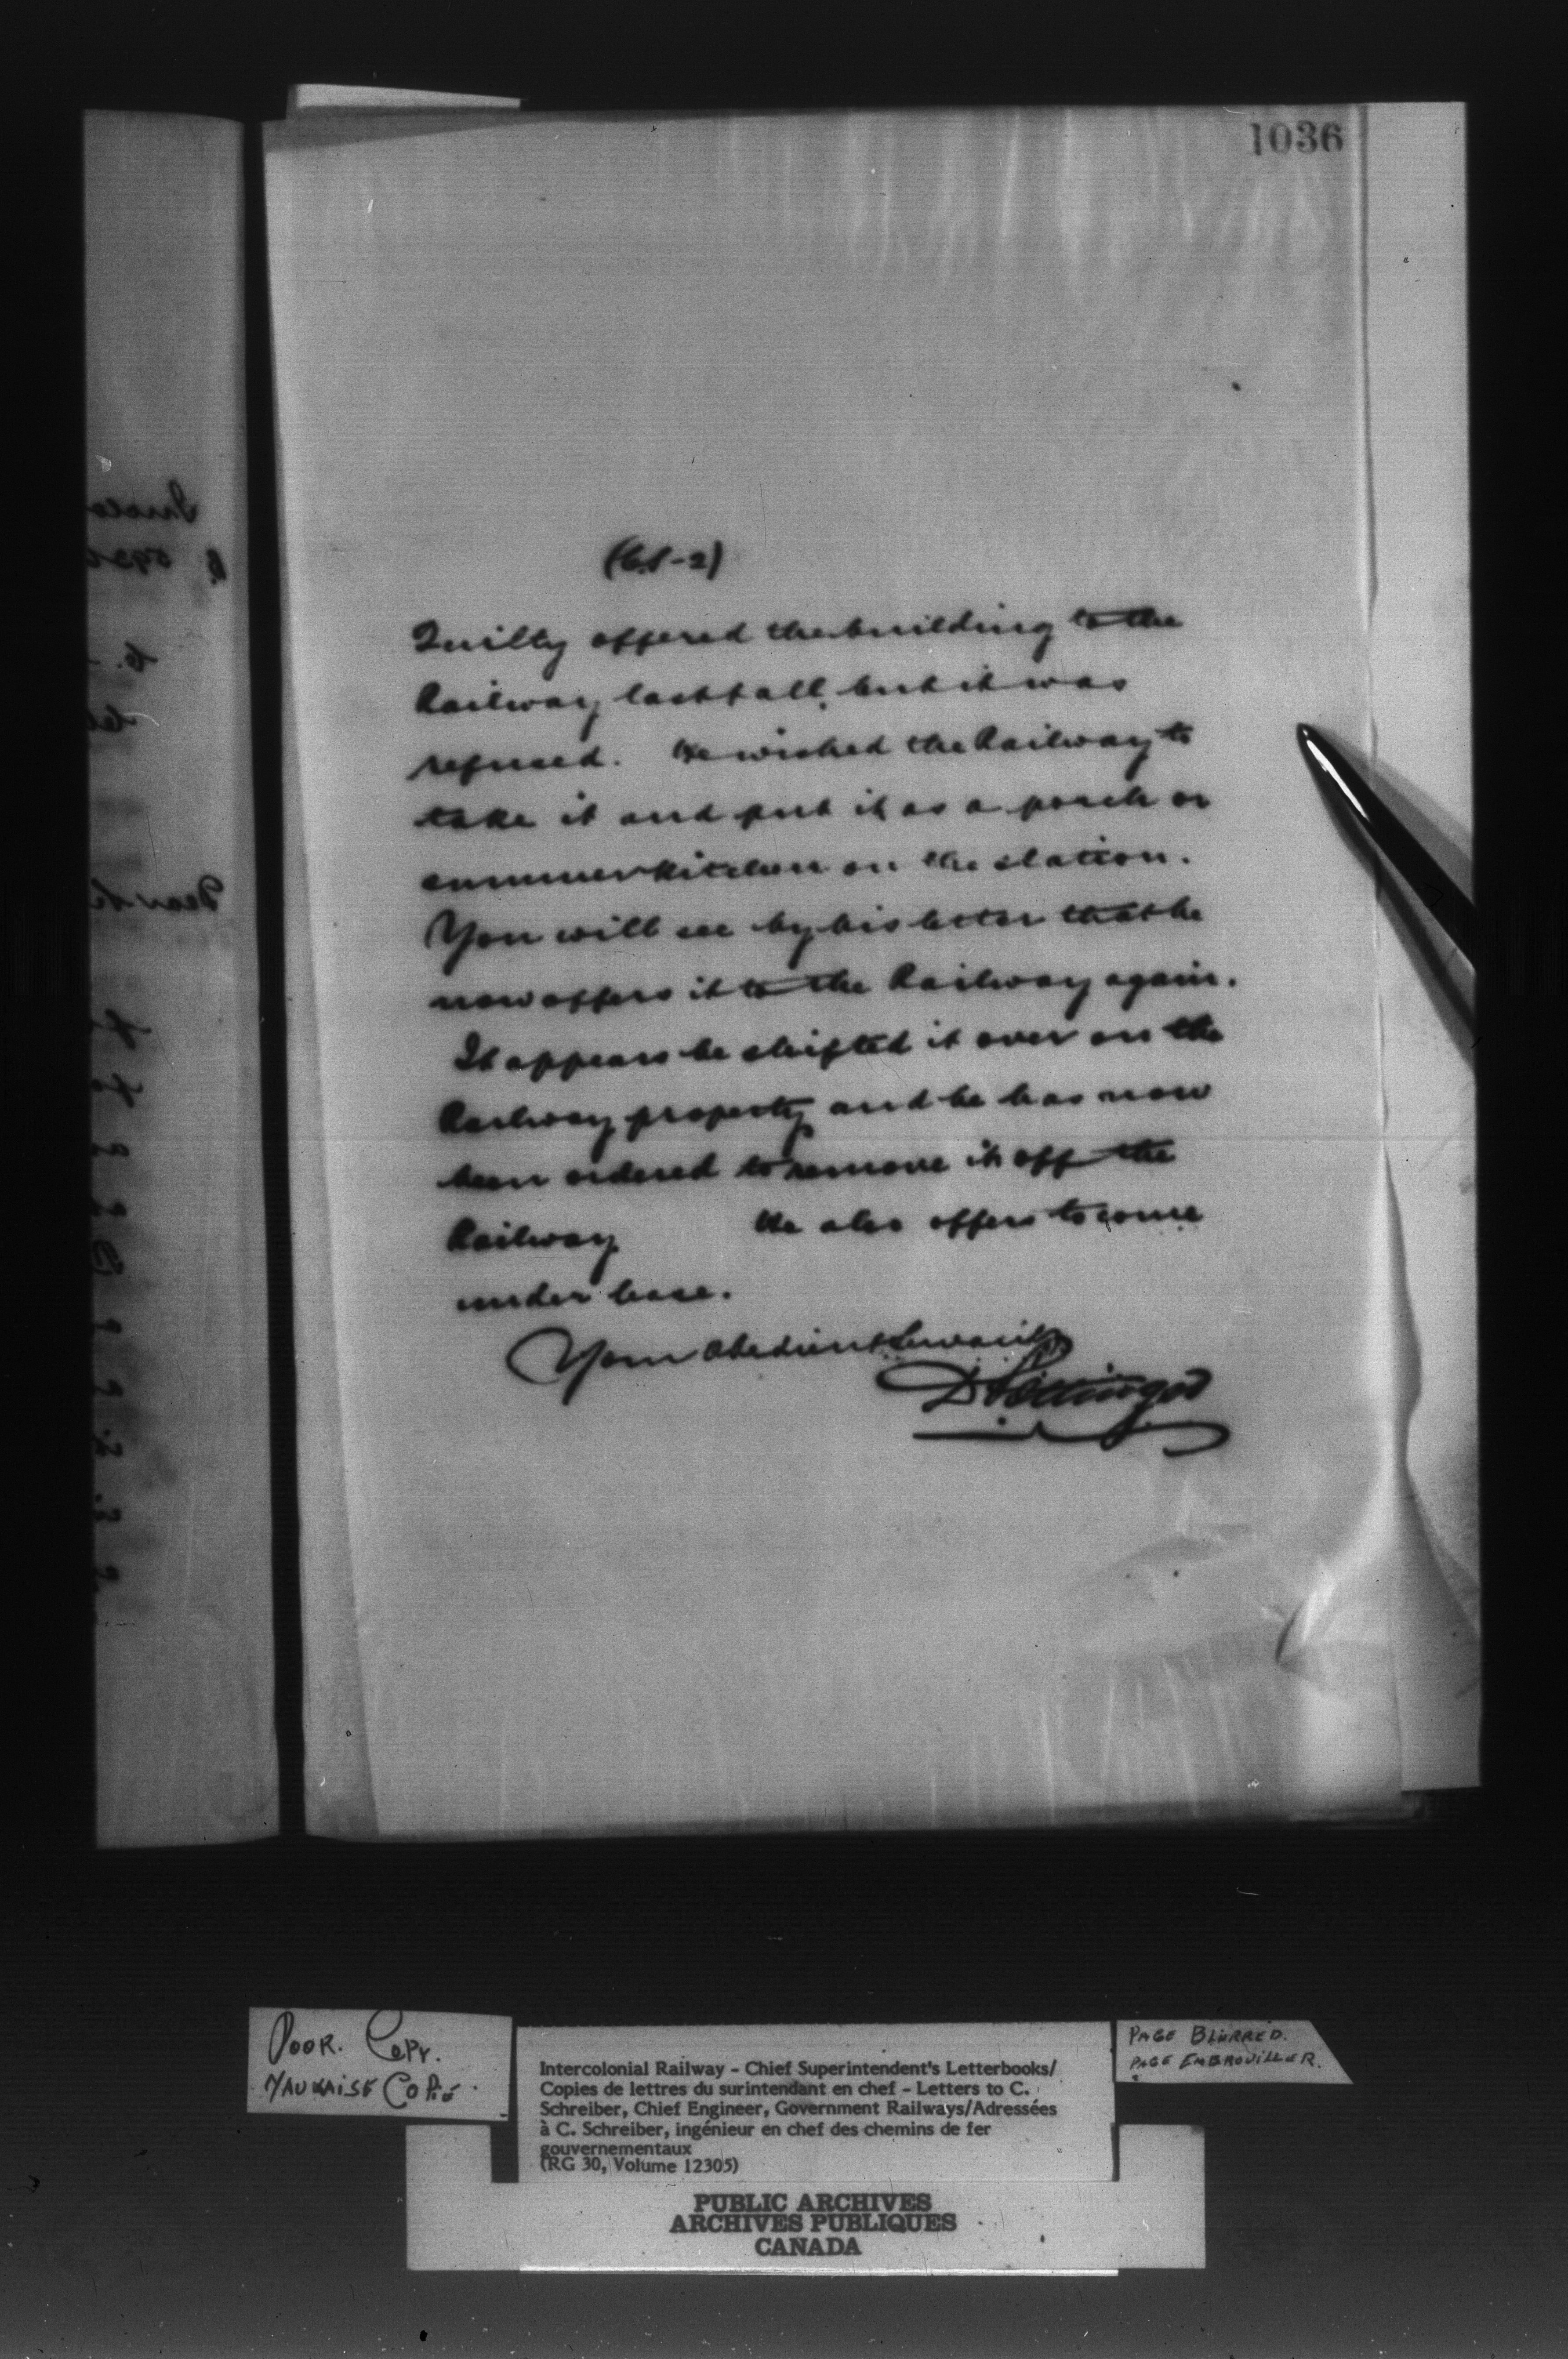 1036
(C.S-2)
Quilty offered the building to the
Railway last fall, but it was
refused. He wished the Railway to
take it and put it as a porch or
summer kitchen on the station.
You will see by his letter that he
now offers it to the Railway again.
It appears he shifted it over on the
Railway property and he has now
been ordered to remove it off the
Railway He also offers to come
under lease.
Your obedient Servant
D Pottinger
POOR. COPY.
MAUVAISE COPIE.
Intercolonial Railway - Chief Superintendent's Letterbooks/
Copies de lettres du surintendant en chef - Letters to C.
Schreiber, Chief Engineer, Government Railways/Adressées
à C. Schreiber, ingénieur en chef des chemins de fer
gouvernementaux
(RG 30, Volume 12305)
PAGE BLURRED.
PAGE EMBROUILLER.
PUBLIC ARCHIVES
ARCHIVES PUBLIQUES
CANADA